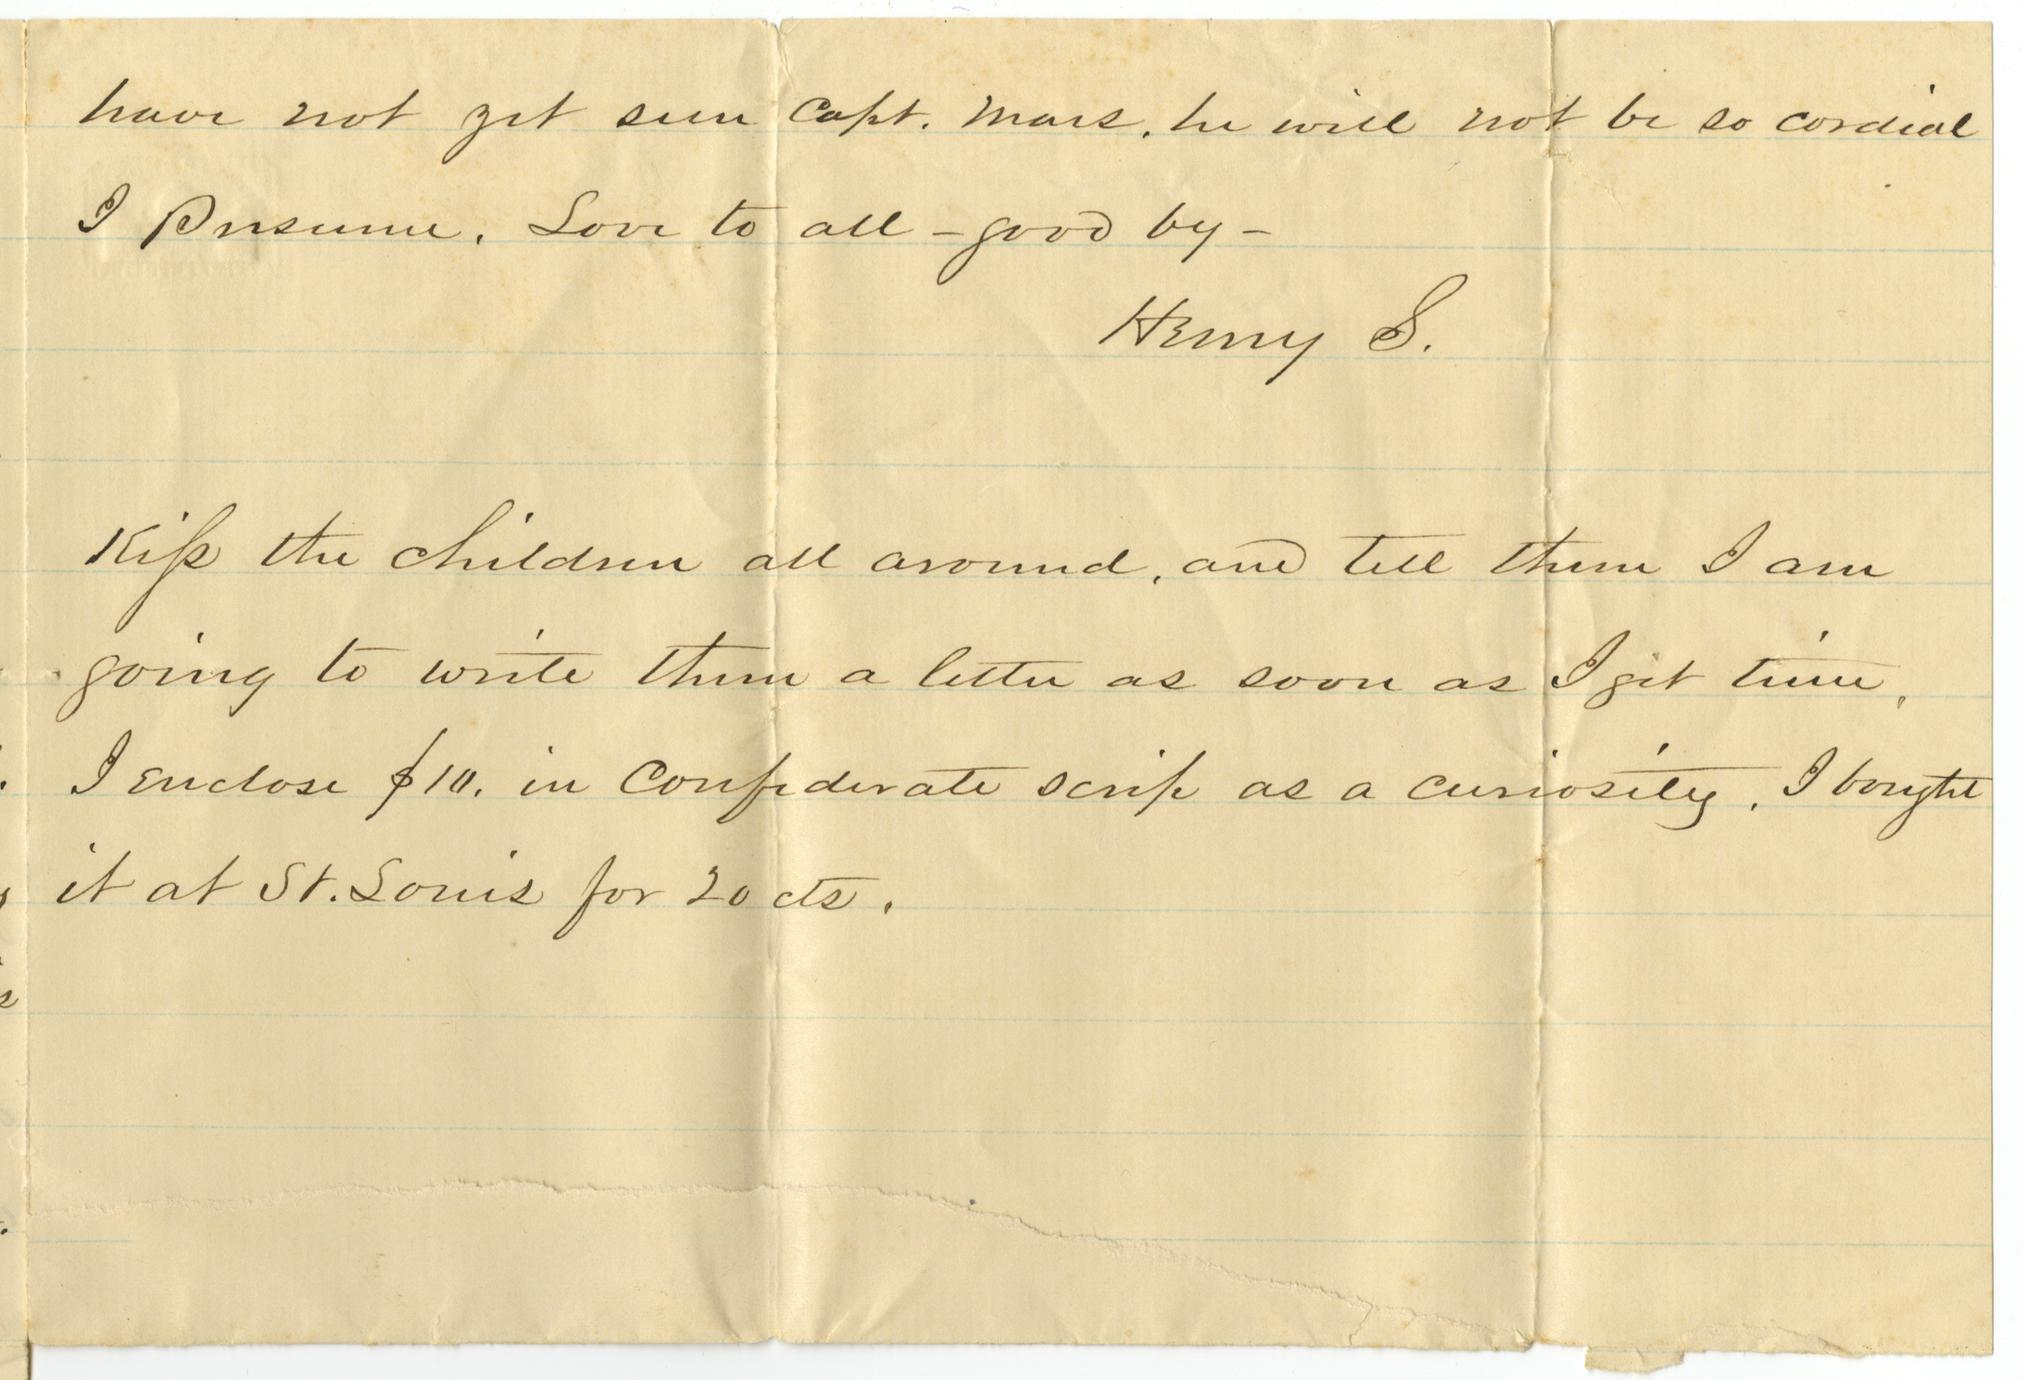 have not yet seen Capt. Mars. he will not be so cordial
I Presume. Love to all – good by –
Henry S.
Kiss the children all around, and tell them I am
going to write them a letter as soon as I get time.
I enclose $10. in Confederate scrip as a curiosity. I bought
it at St. Louis for 20 cts.